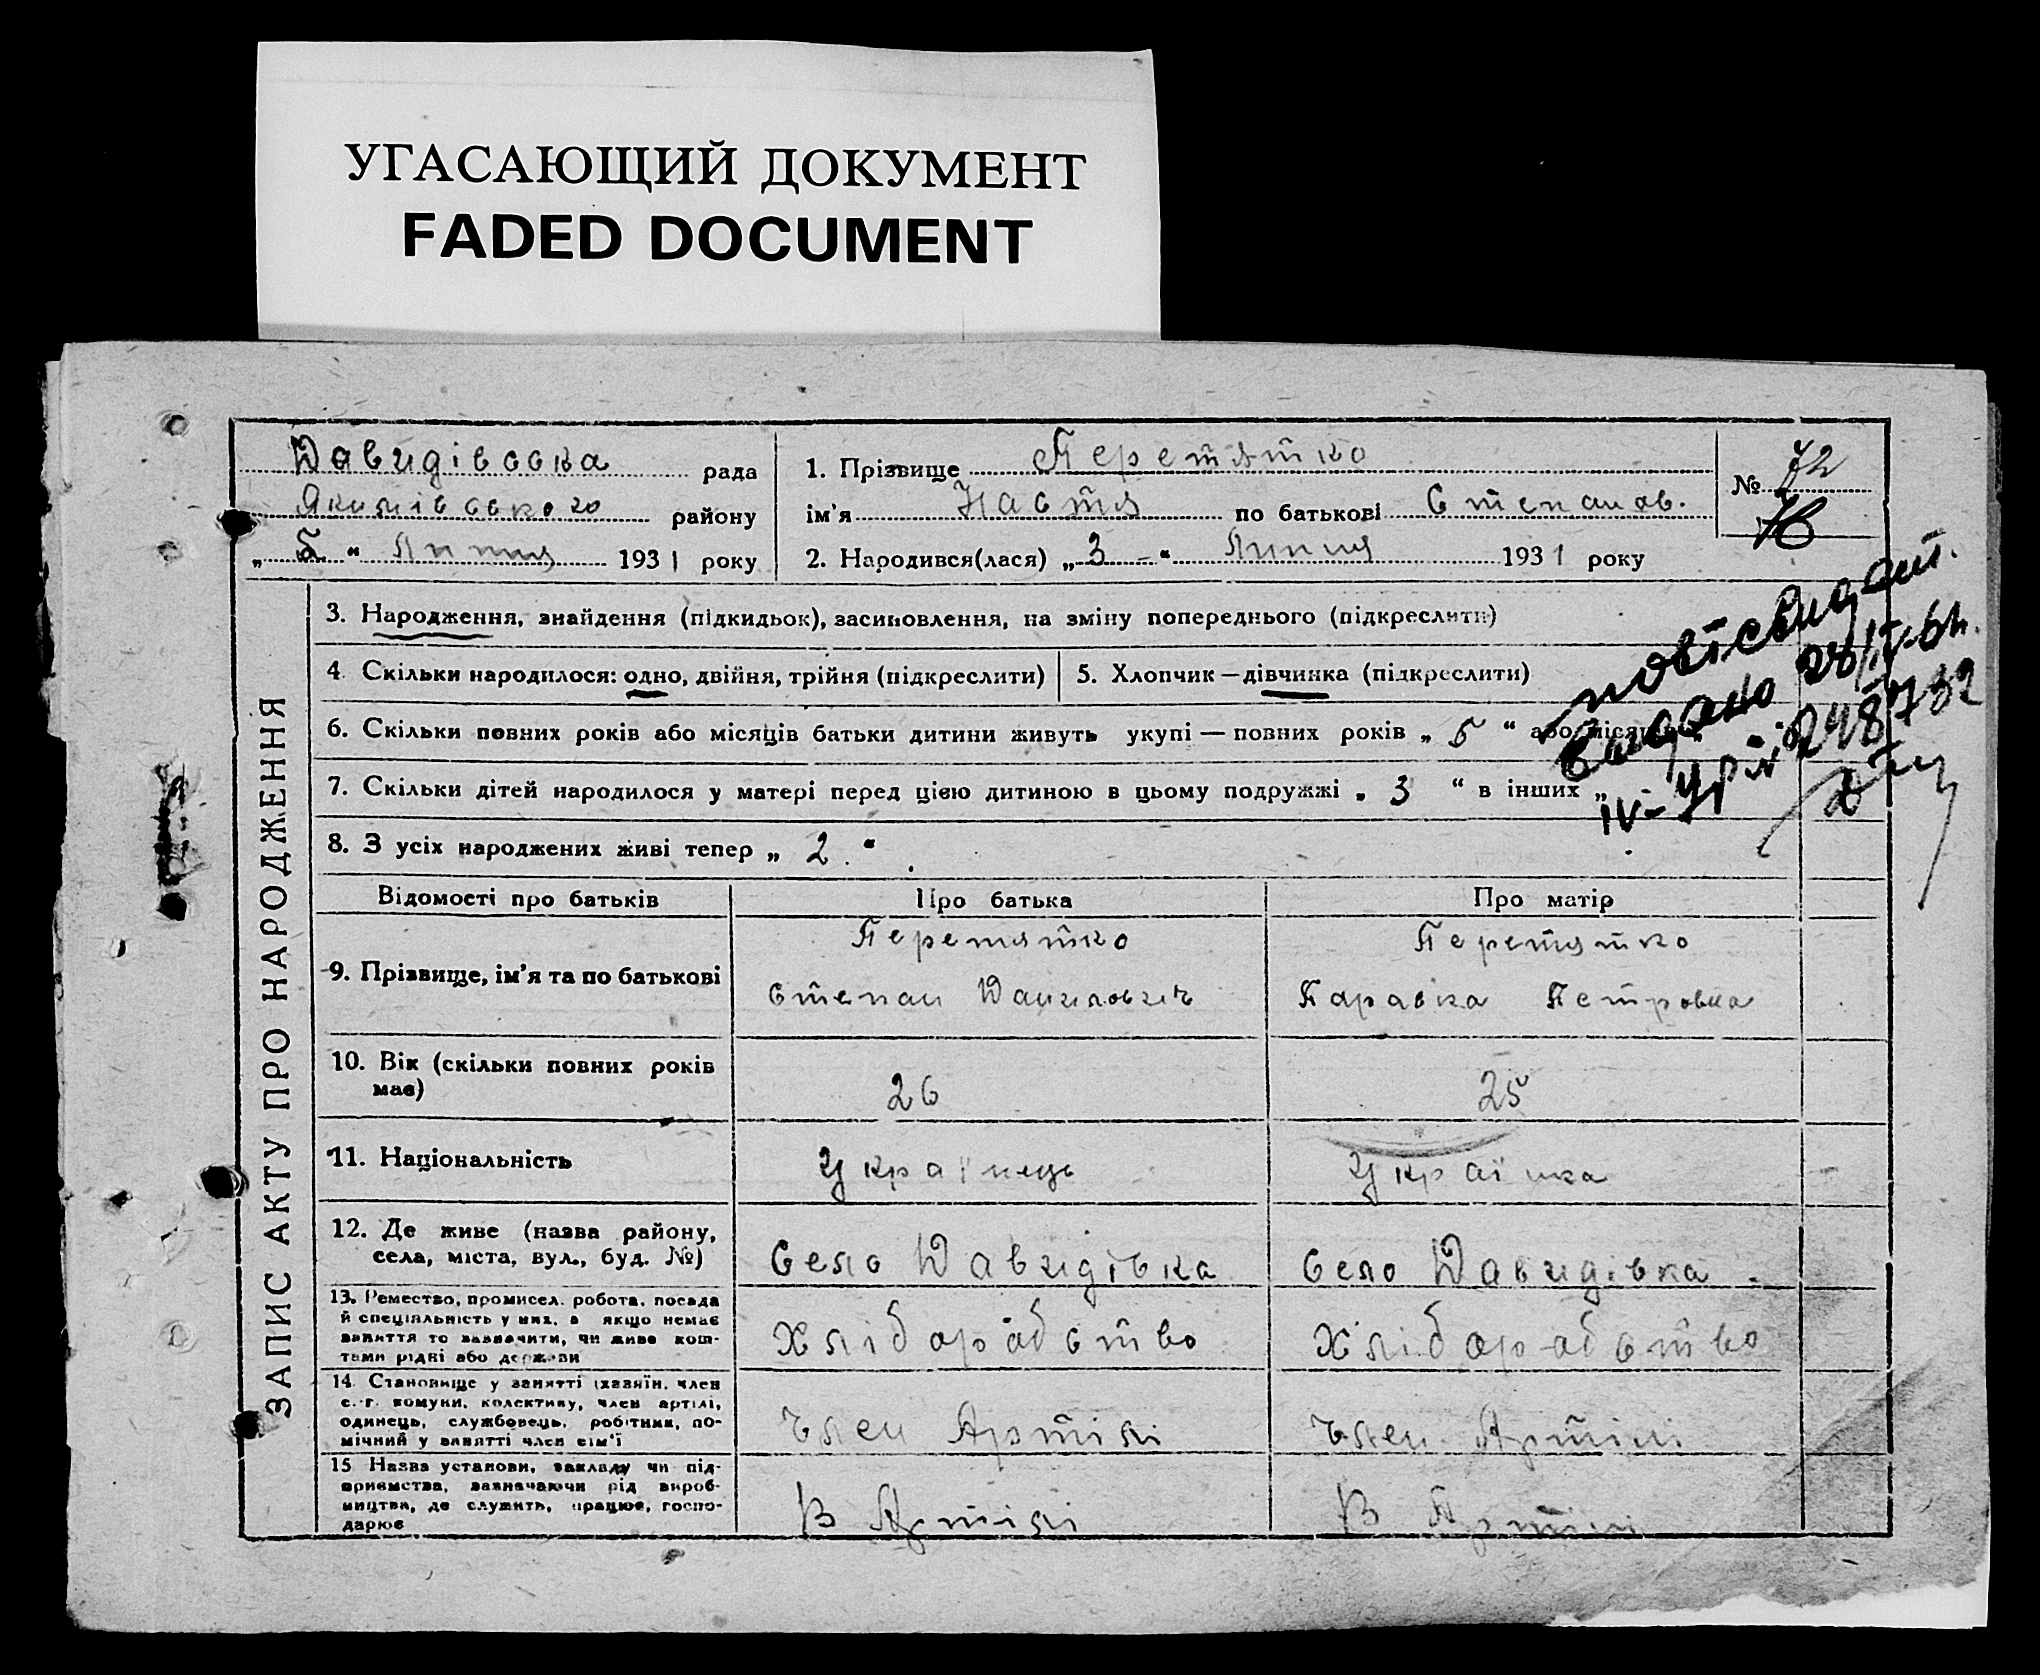 УГАСАЮЩИЙ ДОКУМЕНТ
FADED DOCUMENT
Давидівська рада
Якимівського району
„ 5 “ Липня 1931 року
1. Прізвище Перетятко
ім'я Настя по батькові Степанов.
2. Народився(лася) „ 3 “ Липня 1931 року
№ 72
ЗАПИС АКТУ ПРО НАРОДЖЕННЯ
3. Народження, знайдення (підкидьок), засиновлення, на зміну попереднього (підкреслити)
4. Скільки народилося: одно, двійня, трійня (підкреслити)
5. Хлопчик — дівчинка (підкреслити)
6. Скільки повних років або місяців батьки дитини живуть укупі — повних років „ 5 “ або місяців „
7. Скільки дітей народилося у матері перед цією дитиною в цьому подружжі „ 3 “ в інших „
8. З усіх народжених живі тепер „ 2 . “
выдано 20/IV-61г.
IV-УР № 248732
Відомості про батьків
Про батька
Про матір
9. Прізвище, ім'я та по батькові
Перетятко
Степан Данилович
Перетятко
Параска Петровна
10. Вік (скільки повних років
має)
26
25
11. Національність
Українець
Українка
12. Де живе (назва району,
села, міста, вул., буд. №)
Село Давидівка
Село Давидівка.
13. Ремество, промисел, робота, посада
й спеціяльність у них, а якщо немає
заняття то зазначити, чи живе кош-
тами рідні або держави
Хліборобство
Хліборобство
14. Становище у занятті (хазяїн, член
с.-г. комуни, колективу, член артілі,
одинець, службовець, робітник, по-
мічний у занятті член сім'ї
Член Артілі
Член Артілі
15. Назва установи, закладу чи під-
приємства, зазначаючи рід вироб-
ництва, де служить, працює, госпо-
дарює
В Артілі
В Артілі